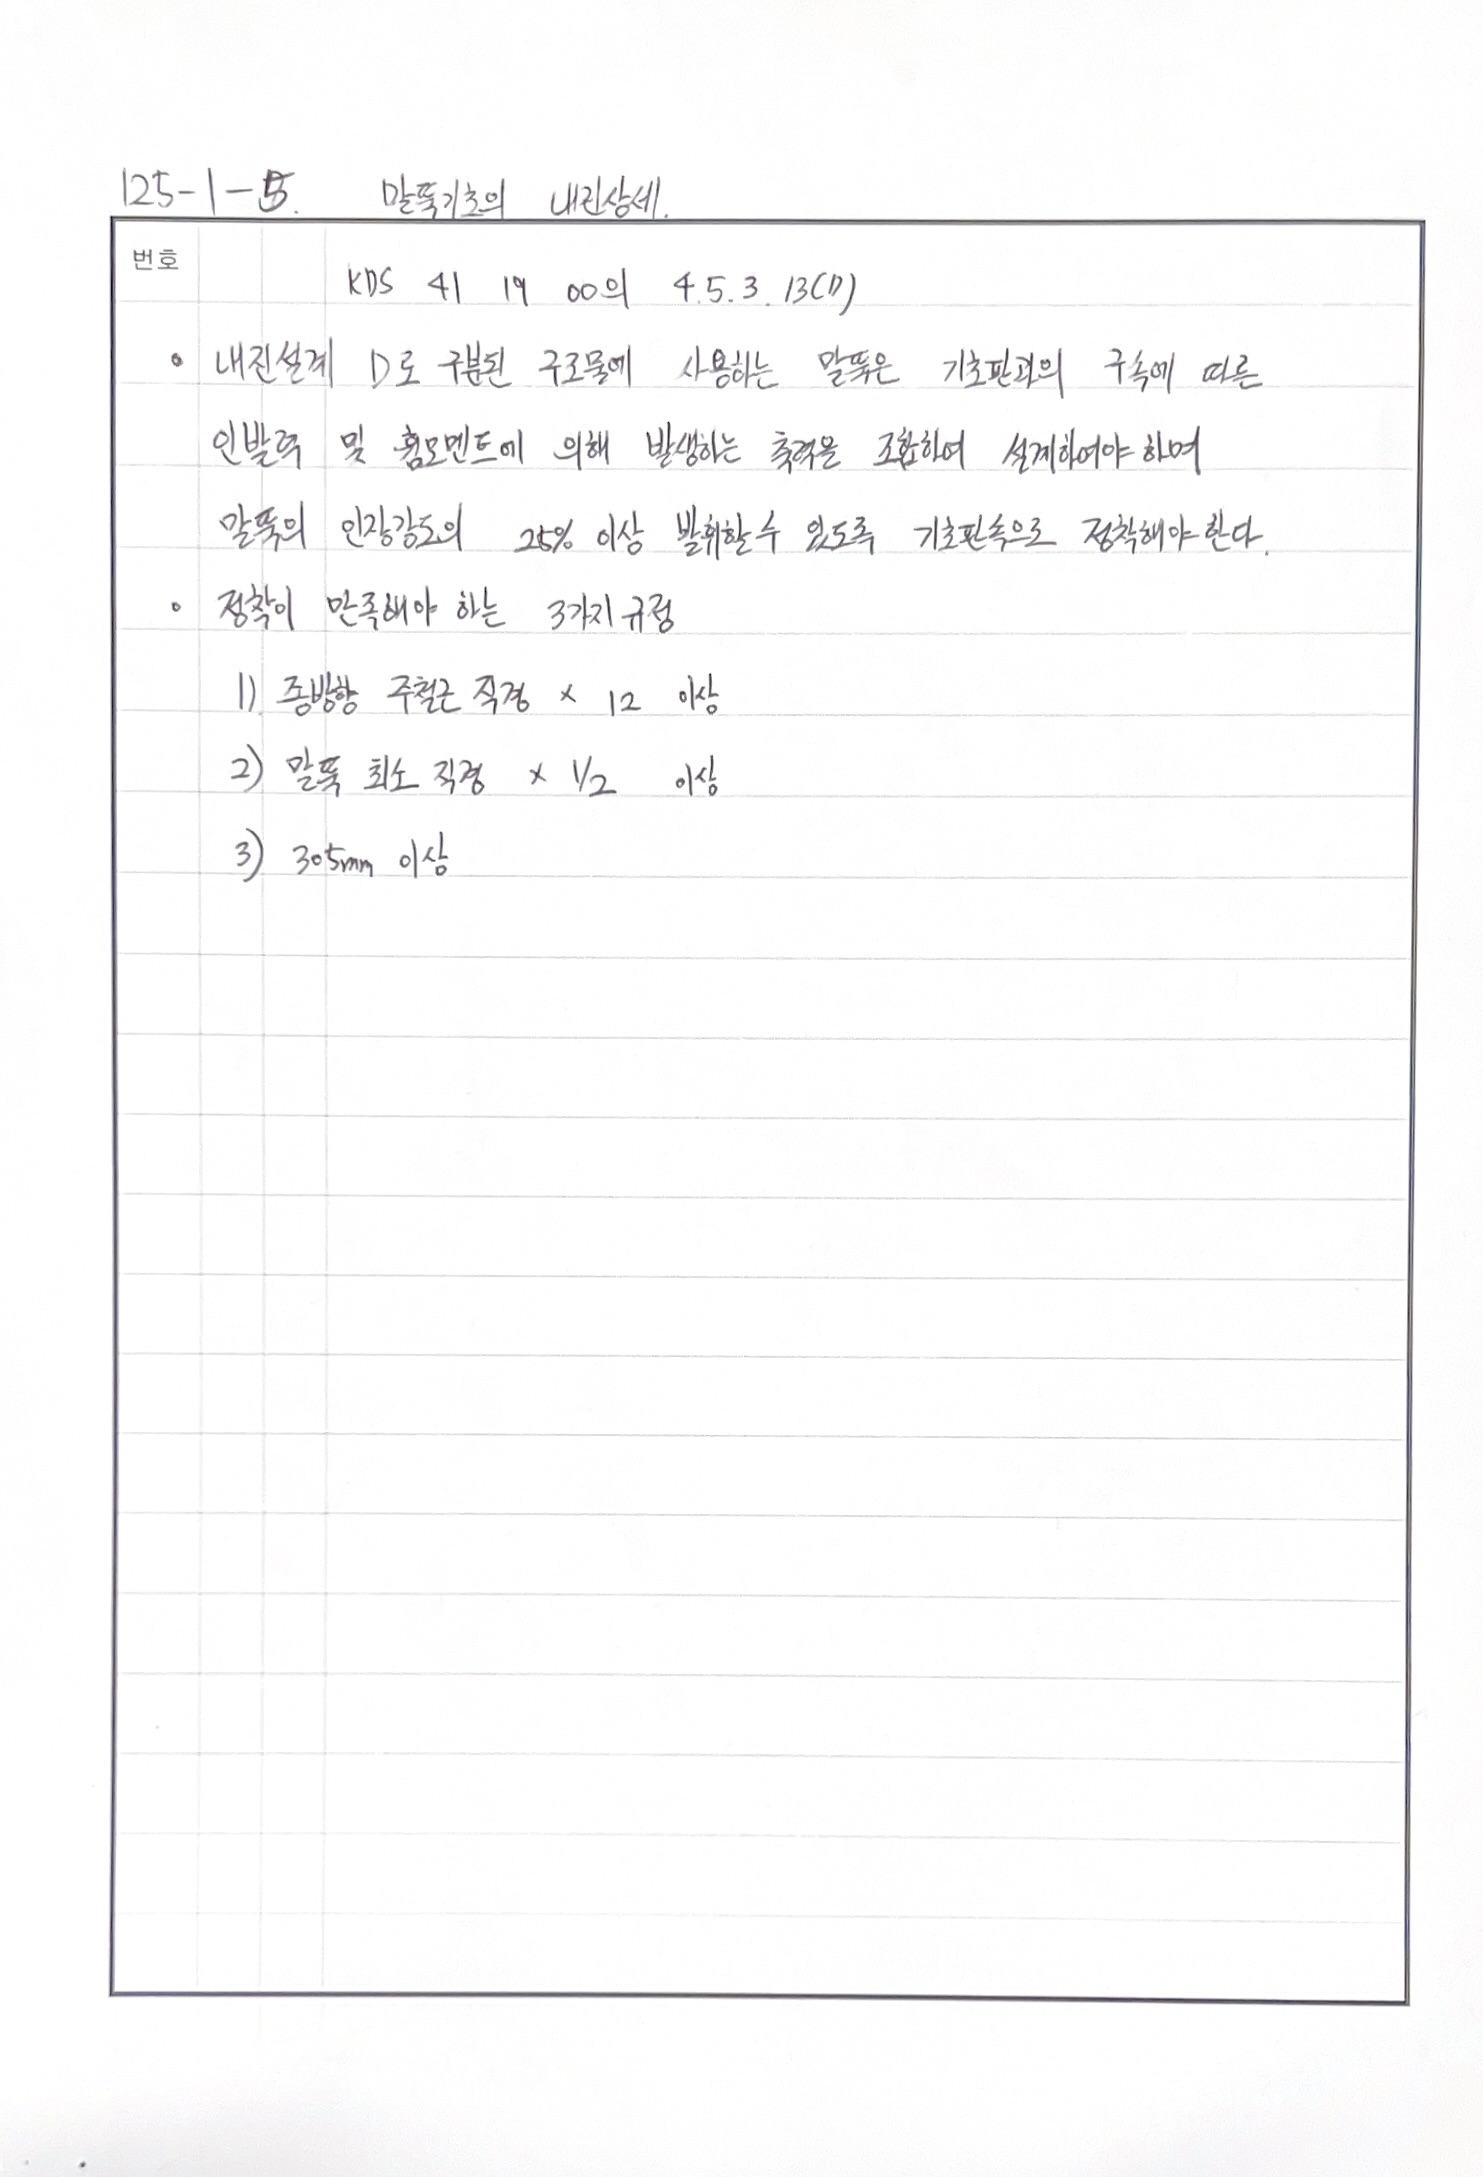 125-1-5. 말뚝기초의 내진상세.
번호
KDS 41 19 00의 4.5.3.13(1)
• 내진설계 D로 구분된 구조물에 사용하는 말뚝은 기초판과의 구속에 따른
인발력 및 휨모멘트에 의해 발생하는 축력을 조합하여 설계하여야 하며
말뚝의 인장강도의 25% 이상 발휘할 수 있도록 기초판속으로 정착해야 한다.
• 정착이 만족해야 하는 3가지 규정
1) 종방향 주철근 직경 × 12 이상
2) 말뚝 최소 직경 × 1/2 이상
3) 305mm 이상